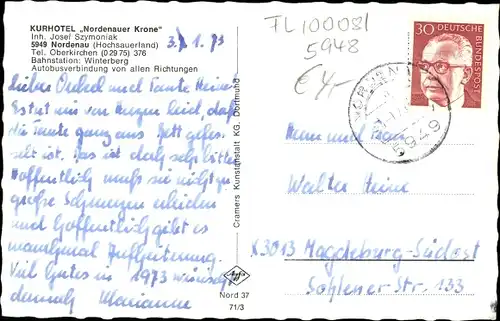 KURHOTEL „Nordenauer Krone"
Inh. Josef Szymoniak
5949 Nordenau (Hochsauerland)
Tel. Oberkirchen (0 29 75) 376
Bahnstation: Winterberg
Autobusverbindung von allen Richtungen
3. 1. 73
Lieber Onkel und Tante
Es tut uns von Herzen leid, daß
die Tante ganz ans Bett gefes-
selt ist. Das ist doch sehr bitter
Hoffentlich muß sie nicht zu
große Schmerzen erleiden
und hoffentlich gibt es
manchmal Aufheiterung.
Viel Gutes in 1973 wünscht
dennoch Marianne
Cramers Kunstanstalt KG, Dortmund
Nord 37
71/3
FL 100081
5948
€ 4,-
30 DEUTSCHE BUNDESPOST
5949
Herrn und Frau
Walter Heine
X 3013 Magdeburg-Südost
Sohlener-Str. 133